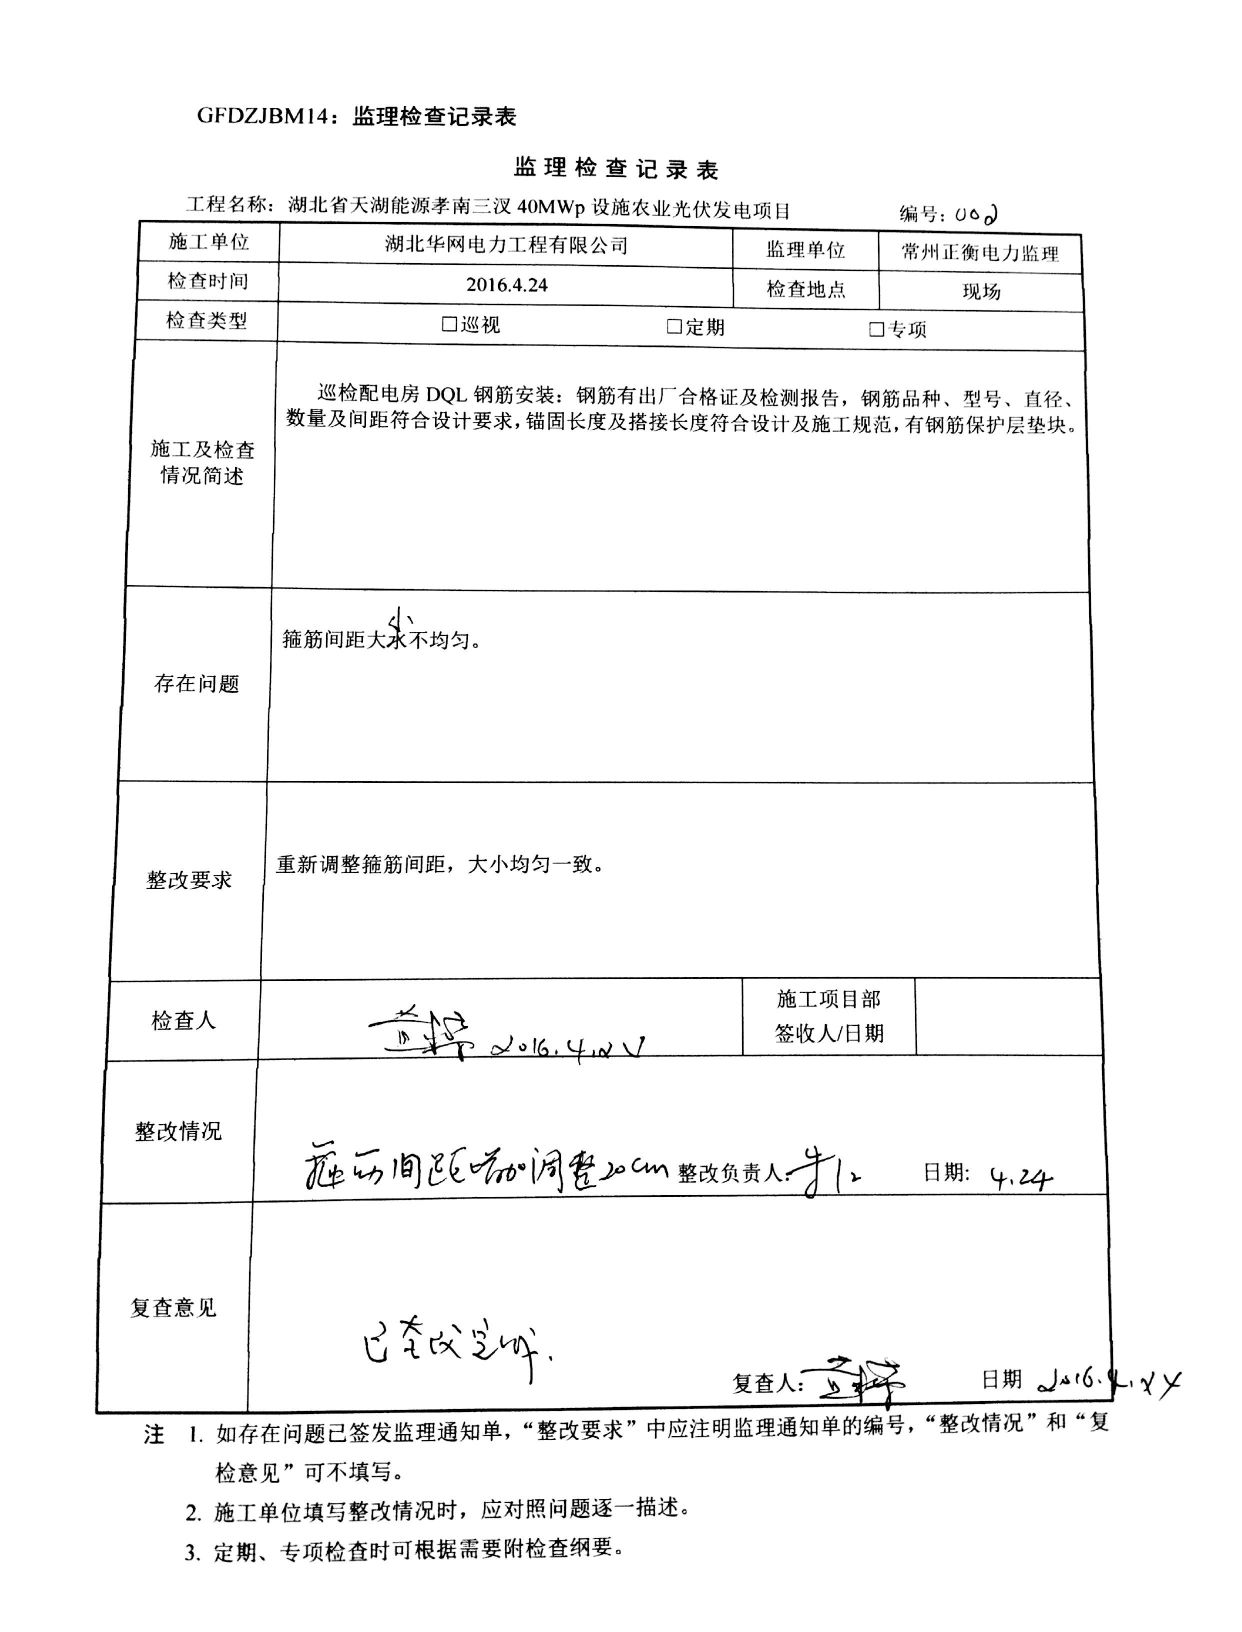 GFDZJBM14：监理检查记录表
监理检查记录表
工程名称：湖北省天湖能源孝南三汊 40MWp 设施农业光伏发电项目 编号：002
施工单位 湖北华网电力工程有限公司 监理单位 常州正衡电力监理
检查时间 2016.4.24 检查地点 现场
检查类型 □巡视 □定期 □专项
巡检配电房 DQL 钢筋安装：钢筋有出厂合格证及检测报告，钢筋品种、型号、直径、
数量及间距符合设计要求，锚固长度及搭接长度符合设计及施工规范，有钢筋保护层垫块。
施工及检查
情况简述
小
箍筋间距大水不均匀。
存在问题
重新调整箍筋间距，大小均匀一致。
整改要求
施工项目部
检查人 2016.4.24
签收人/日期
整改情况
箍筋间距 调整20cm 整改负责人： 日期：4.24
复查意见
已整改完毕.
复查人： 日期 2016.4.24
注 1. 如存在问题已签发监理通知单，“整改要求”中应注明监理通知单的编号，“整改情况”和“复
检意见”可不填写。
2. 施工单位填写整改情况时，应对照问题逐一描述。
3. 定期、专项检查时可根据需要附检查纲要。